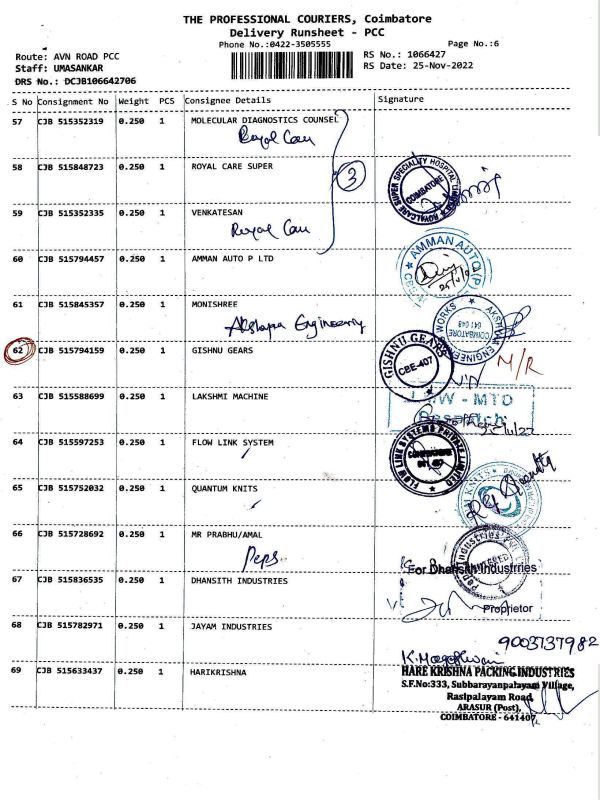 THE PROFESSIONAL COURIERS, Coimbatore
Delivery Runsheet - PCC
Phone No.:0422-3505555
Page No.:6
Route: AVN ROAD PCC
RS No.: 1066427
Staff: UMASANKAR
RS Date: 25-Nov-2022
DRS No.: DCJB106642706
S No Consignment No Weight PCS Consignee Details Signature
57 CJB 515352319 0.250 1 MOLECULAR DIAGNOSTICS COUNSEL
Royal Care
3
58 CJB 515848723 0.250 1 ROYAL CARE SUPER
ROYALCARE SUPER SPECIALITY HOSPITAL LIMITED
COIMBATORE
59 CJB 515352335 0.250 1 VENKATESAN
Royal Care
60 CJB 515794457 0.250 1 AMMAN AUTO P LTD
AMMAN AUTO (P)
61 CJB 515845357 0.250 1 MONISHREE
Engineering
WORKS
COIMBATORE
641 048
62 CJB 515794159 0.250 1 GISHNU GEARS
GISHNU GEARS
CBE-407
M/R
63 CJB 515588699 0.250 1 LAKSHMI MACHINE
MTD
64 CJB 515597253 0.250 1 FLOW LINK SYSTEM
FLOW LINK SYSTEMS PRIVATE LIMITED
65 CJB 515752032 0.250 1 QUANTUM KNITS
KNITS
66 CJB 515728692 0.250 1 MR PRABHU/AMAL
Peps
67 CJB 515836535 0.250 1 DHANSITH INDUSTRIES
For Dhansith Industries
Proprietor
68 CJB 515782971 0.250 1 JAYAM INDUSTRIES
9003737982
69 CJB 515633437 0.250 1 HARIKRISHNA
HARE KRISHNA PACKING INDUSTRIES
S.F.No:333, Subbarayanpalayam Village,
Rasipalayam Road,
ARASUR (Post),
COIMBATORE - 641407.